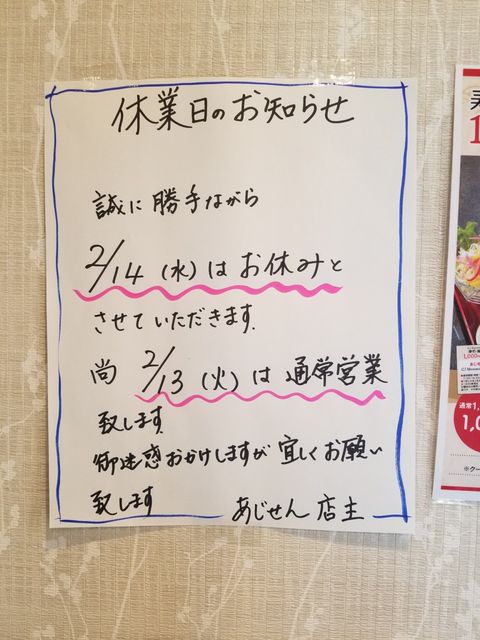 休業日のお知らせ
誠に勝手ながら
2/14（水）はお休みと
させていただきます.
尚 2/13（火）は通常営業
致します.
御迷惑おかけしますが宜しくお願い
致します
あじせん 店主
通常1,
1,0
※クー